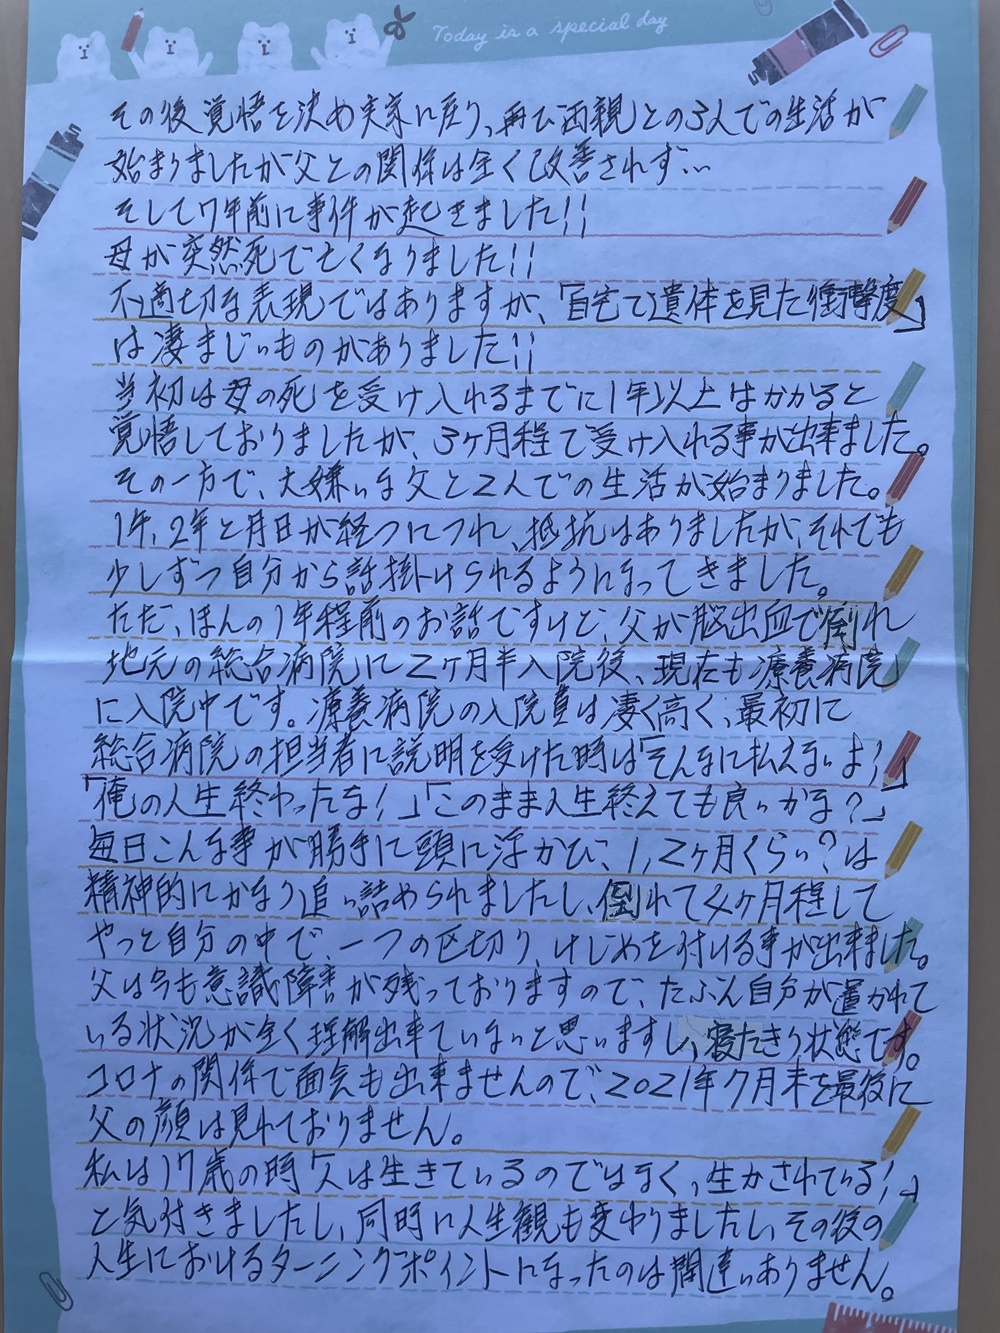 Today is a special day
その後覚悟を決め実家に戻り、再び両親との3人での生活が
始まりましたが父との関係は全く改善されず…
そして7年前に事件が起きました!!
母が突然死で亡くなりました!!
不適切な表現ではありますが、「自宅で遺体を見た衝撃度」
は凄まじいものがありました!!
当初は母の死を受け入れるまでに1年以上はかかると
覚悟しておりましたが、3ヶ月程で受け入れる事が出来ました。
その一方で、大嫌いな父と2人での生活が始まりました。
1年、2年と月日が経つにつれ、抵抗はありましたが、それでも
少しずつ自分から話掛けられるようになってきました。
ただ、ほんの1年程前のお話ですけど、父が脳出血で倒れ
地元の総合病院に2ヶ月半入院後、現在も療養病院
に入院中です。療養病院の入院費は凄く高く、最初に
総合病院の担当者に説明を受けた時は「そんなに払えないよ!」
「俺の人生終わったな!」「このまま人生終えても良いかな?」
毎日こんな事が勝手に頭に浮かび、1,2ヶ月くらい?は
精神的にかなり追い詰められましたし、倒れて4ヶ月程して
やっと自分の中で、一つの区切り、けじめを付ける事が出来ました。
父は今も意識障害が残っておりますので、たぶん自分が置かれて
いる状況が全く理解出来ていないと思いますし、寝たきり状態です。
コロナの関係で面会も出来ませんので、2021年7月末を最後に
父の顔は見れておりません。
私は17歳の時「人は生きているのではなく、生かされている!」
と気付きましたし、同時に人生観も変わりましたし、その後の
人生におけるターニングポイントになったのは間違いありません。